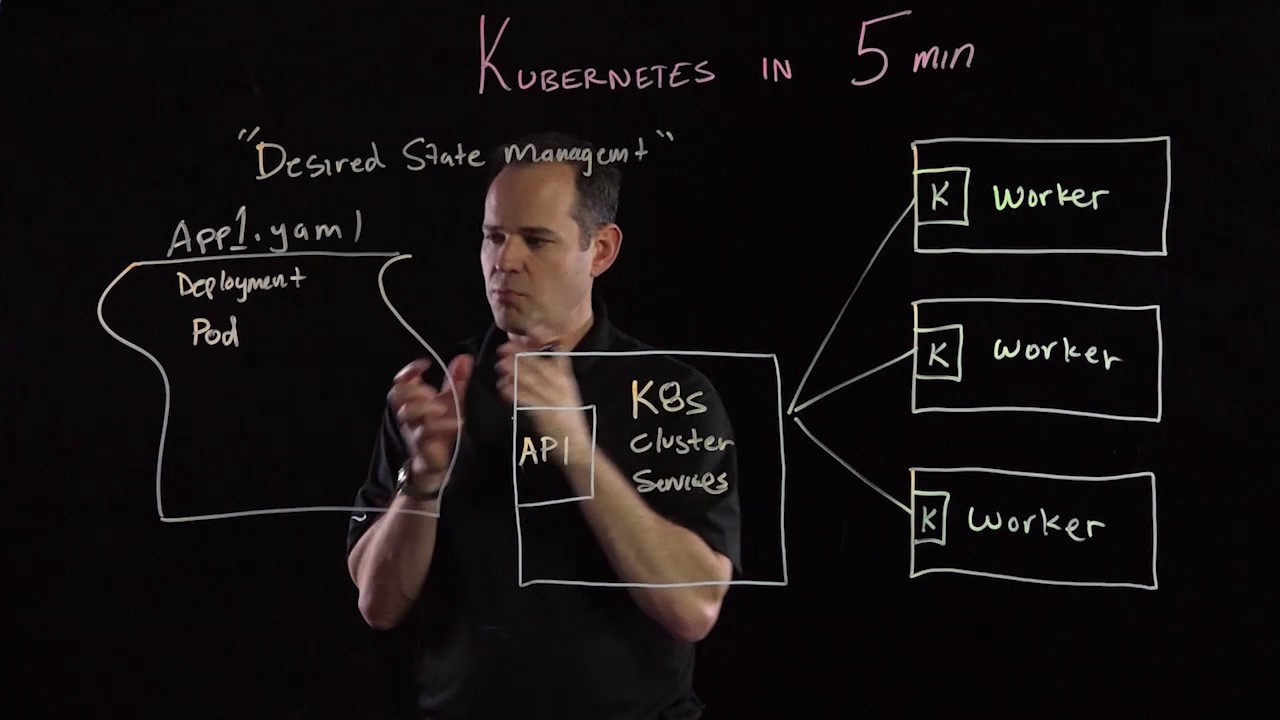 KUBERNETES IN 5 min
"Desired State Managemt"
App1.yaml
Deployment
Pod
K8s
Cluster
Services
API
K Worker
K Worker
K Worker